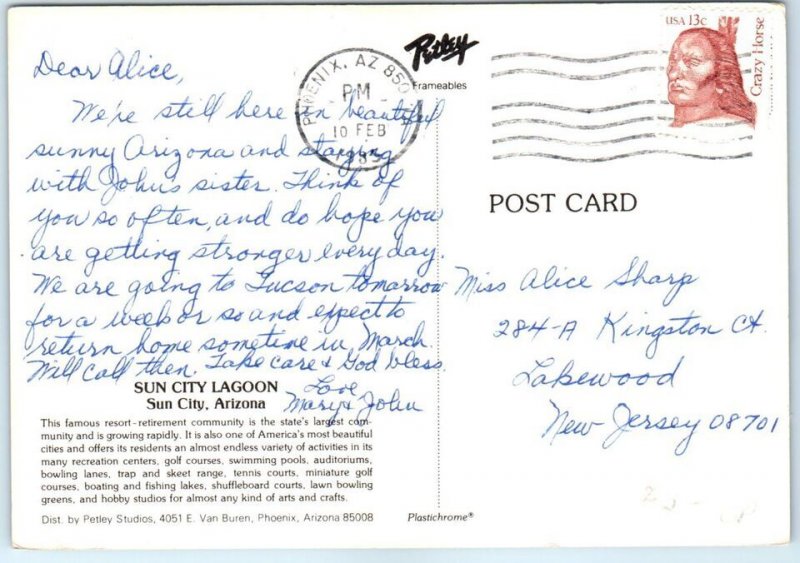 Dear Alice,
We're still here in beautiful
sunny Arizona and staying
with John's sister. Think of
you so often, and do hope you
are getting stronger every day.
We are going to Tucson tomorrow
for a week or so and expect to
return home sometime in March.
Will call then. Take care & God bless.
Love
Mary & John
SUN CITY LAGOON
Sun City, Arizona
This famous resort-retirement community is the state's largest com-
munity and is growing rapidly. It is also one of America's most beautiful
cities and offers its residents an almost endless variety of activities in its
many recreation centers, golf courses, swimming pools, auditoriums,
bowling lanes, trap and skeet range, tennis courts, miniature golf
courses, boating and fishing lakes, shuffleboard courts, lawn bowling
greens, and hobby studios for almost any kind of arts and crafts.
Dist. by Petley Studios, 4051 E. Van Buren, Phoenix, Arizona 85008
Plastichrome®
Petley
Frameables
PHOENIX, AZ
PM
10 FEB
USA 13c
Crazy Horse
POST CARD
Miss Alice Sharp
284-A Kingston Ct.
Lakewood
New Jersey 08701